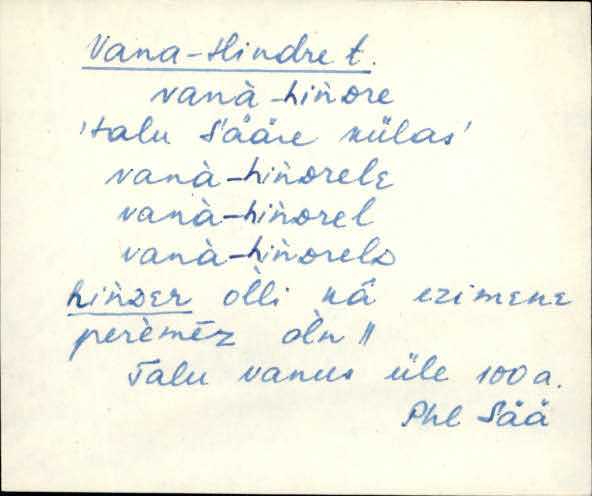 Vana-Hindre t.
vanà-hiǹᴅre
'talu Sääre külas'
vanà-hiǹᴅrelᴇ
vanà-hiǹᴅrel
vanà-hiǹᴅrelᴅ
hiǹᴅᴇr òlli kä ezimᴇnᴇ
perèmēz òln ||
Talu vanus üle 100 a.
Phl Sää